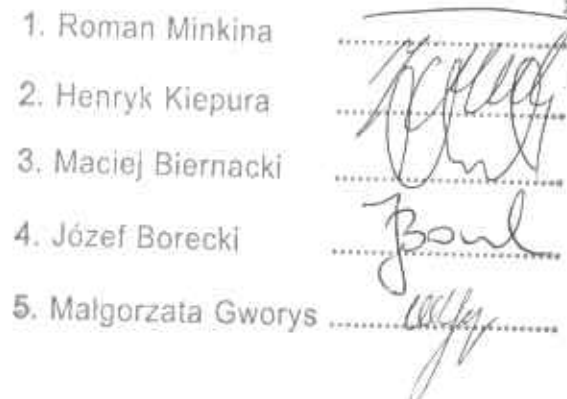 1. Roman Minkina
2. Henryk Kiepura
3. Maciej Biernacki
4. Józef Borecki
5. Małgorzata Gworys